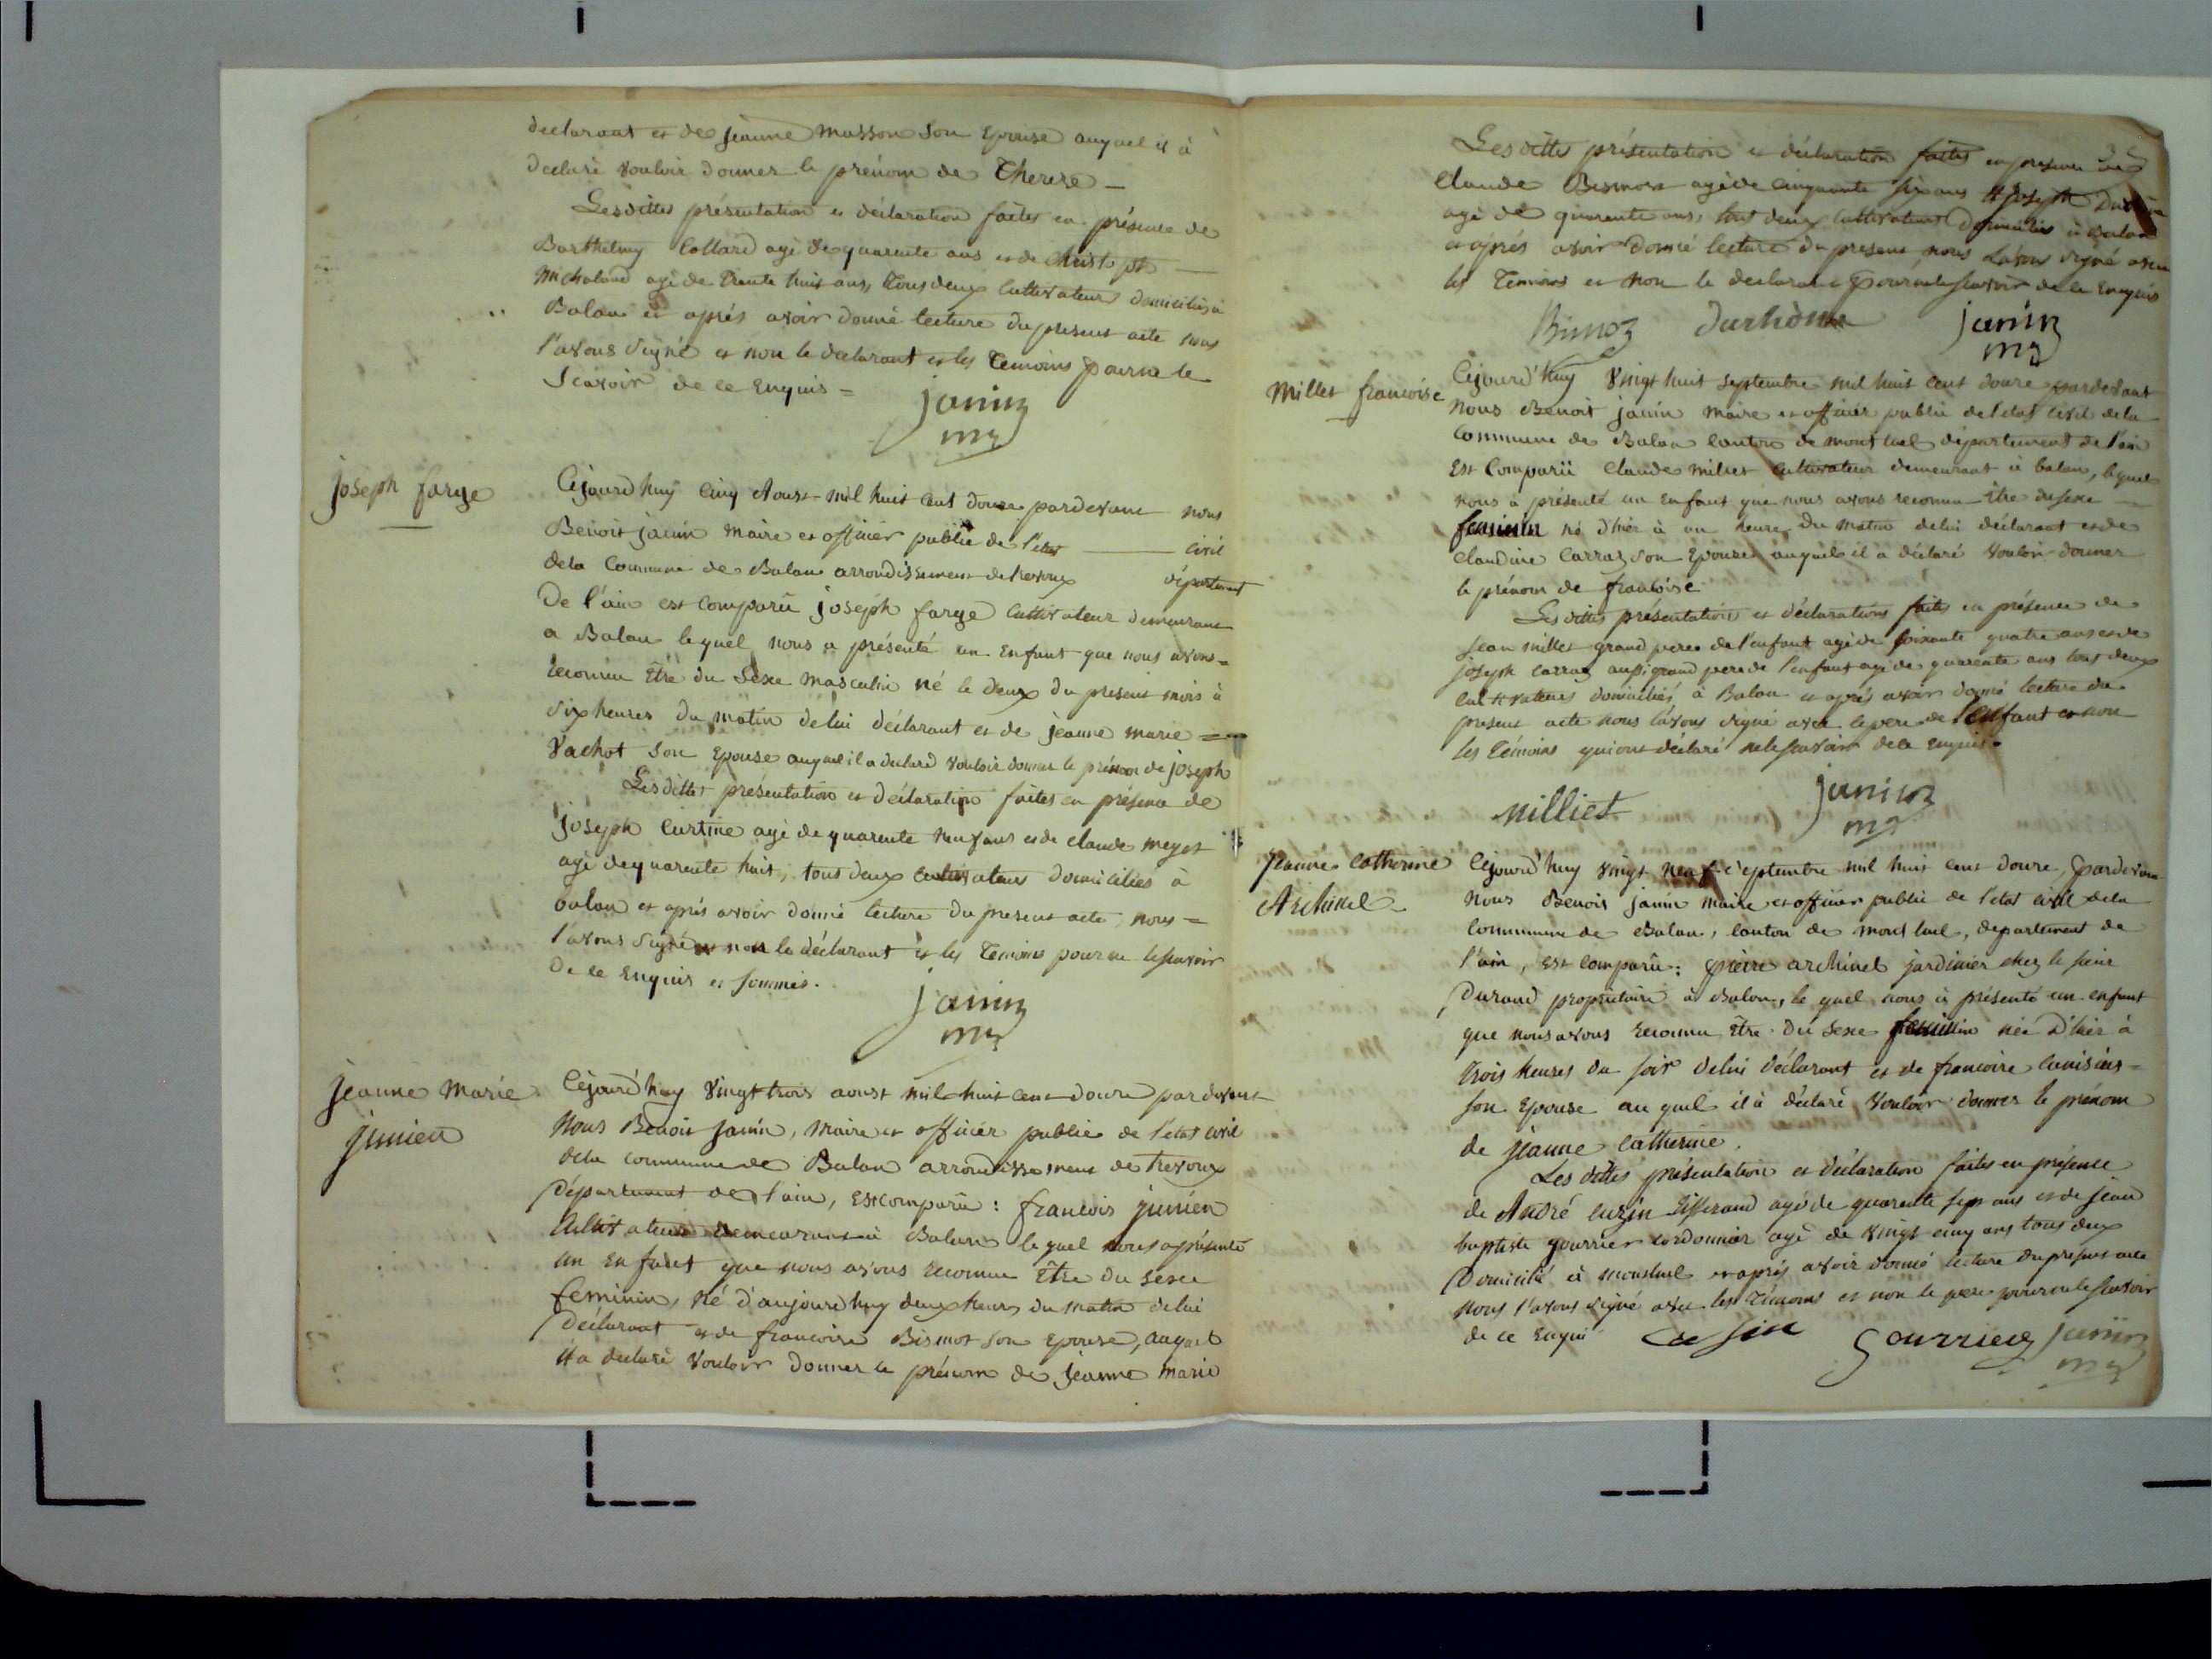 declarant et de jeanne Musson Son Epouse auquel il à
declaré vouloir donner le prénom de Therese —
Lesdittes présentation et déclaration faites en présence de
Barthelmy Collard agé de quarente ans et de Christ phe —
Michaland agé de Trente huit ans, Tous deux Cultivateurs domiciliés à
Balan et aprés avoir donné lecture du present acte nous
l'avons Signé et non le declarant et les Temoins pour ne le
Scavoir de ce Enquis =
janin
m
joseph farge
Cejourd'huy Cinq Aoust mil huit Cent douze pardevant nous
Benoit janin Maire et officier public de l'etat — civil
dela Commune de Balan arrondissement de trevoux département
De l'ain est Comparü joseph farge Cultivateur demeurant
a Balan lequel nous a présenté un Enfant que nous avons =
reconnu Être du Sexe masculin né le deux du present mois à
Six heures du matin delui déclarant et de jeanne marie =
Vachot Son Epouse auquel il a declaré vouloir donner le prénom de joseph
Lesdittes présentation et déclaration faites en présence de
joseph Curtine agé de quarente neuf ans et de claude meyet
agé de quarente huit, tous deux Cultivateurs domiciliés à
balan et aprés avoir donné lecture du present acte nous =
l'avons Signé et non le déclarant et les Temoins pour ne le scavoir
De ce Enquis et Sommés.
janin
m
jeanne Marie
junien
Cejourd'huy Vingt trois aoust mil huit cent douze pardevant
Nous Benoit janin, Maire et officier public de l'etat civil
dela commune de Balan arrondissement de trevoux
Département de l'ain, est comparü : francois junien
Cultivateur demeurant à Balan lequel nous a présenté
un Enfant que nous avons reconnu Être du sexe
feminin, Né d'aujourd'huy deux heures du matin delui
Déclarant et de francoise Bismot Son Epouse, auquel
il a declaré vouloir donner le prénom de jeanne marie
Lesdittes présentation et déclaration faites en présence de
Claude Bismot agé de Cinquante Six ans et joseph
agé de quarente ans, tout deux Cultivateurs Domiciliés à Balan
et aprés avoir donné lecture du present nous l'avons signé avec
les Temoins et non le declarant pour ne le scavoir de ce Enquis
janin
m
Millet francoise
Cejourd'huy Vingt huit Septembre mil huit cent douze pardevant
Nous Benoit janin maire et officier public de l'etat civil dela
Commune de Balan canton de montluel département de l'ain
Est Comparü Claude millet Cultivateur demeurant à balan, lequel
nous à présenté un Enfant que nous avons reconnu être du sexe
feminin né d'hier à un heure du matin delui déclarant et de
Claudine Carraz Son Epouse auquel il a déclaré Vouloir donner
le prénom de francoise
Lesdittes présentation et déclarations faites en présence de
jean millet grand pere de l'enfant agé de soixante quatre ans et de
joseph carraz aussi grand pere de l'enfant agé de quarente ans tout deux
cultivateurs domiciliés à Balan et aprés avoir donné lecture du
present acte nous l'avons signé avec le pere de l'enfant et non
les Témoins qui ont déclaré ne le scavoir de ce Enquis.
Milliet
janin
m
jeanne Catherine
Archinel
Cejourd'huy Vingt neuf Septembre mil huit cent douze, pardevant
Nous Benoit janin Maire et officier public de l'etat civil dela
Commune de Balan, canton de montluel, departement de
l'ain, est comparü : pierre archinel jardinier chez le sieur
Durand propriétaire à Balan, le quel nous à présenté un enfant
que nous avons reconnu Être du Sexe feminin née d'hier à
trois heures du soir delui déclarant et de francoise
Son Epouse au quel il à déclaré Vouloir donner le prénom
de jeanne Catherine.
Lesdittes présentation et déclaration faites en présence
de André cuzin Tisserand agé de quarente sept ans et de jean
baptiste gourrier cordonnier agé de vingt cinq ans tous deux
Domicilié à montluel et aprés avoir donné lecture du present acte
nous l'avons signé avec les Témoins et non le pere pour ne le scavoir
de ce Enquis
Gourrier janin
m